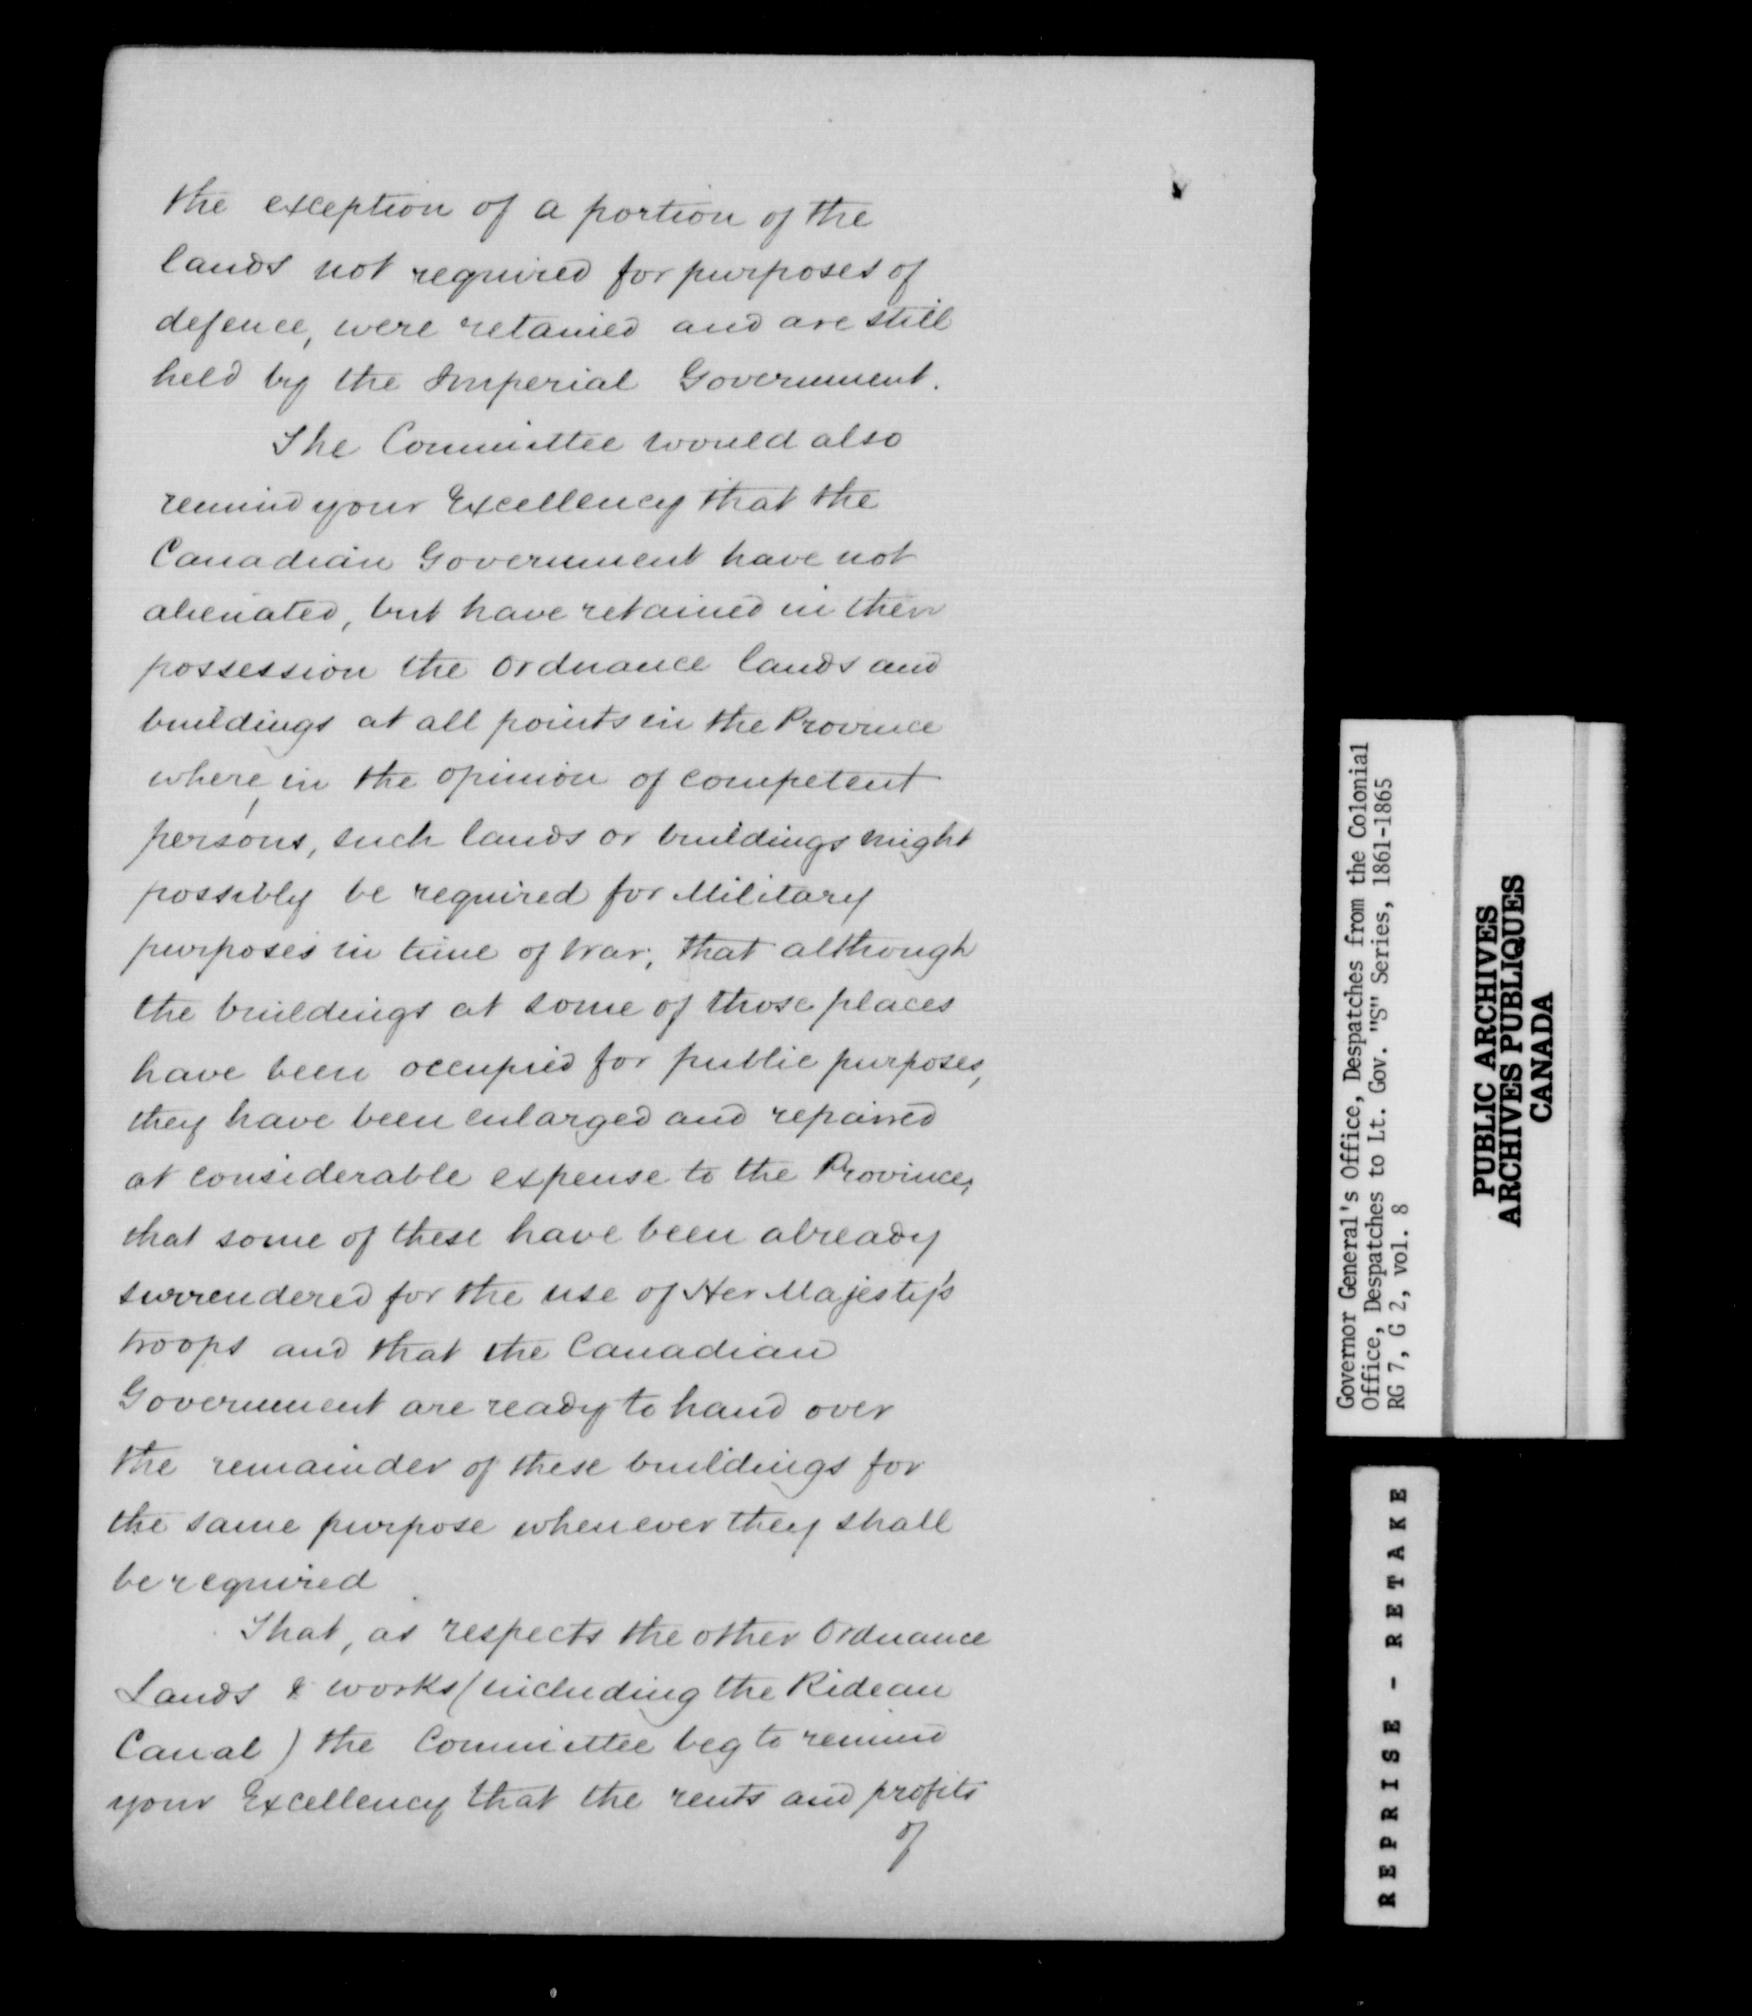 the exception of a portion of the
lands not required for purposes of
defence, were retained and are still
held by the Imperial Government.
The Committee would also
remind your Excellency that the
Canadian Government have not
alienated, but have retained in their
possession the ordnance lands and
buildings at all points in the Province
where, in the opinion of competent
persons, such lands or buildings might
possibly be required for Military
purposes in time of War; that although
the buildings at some of those places
have been occupied for public purposes,
they have been enlarged and repaired
at considerable expense to the Province;
that some of these have been already
surrendered for the use of Her Majesty's
troops and that the Canadian
Government are ready to hand over
the remainder of these buildings for
the same purpose whenever they shall
be required
That, as respects the other Ordnance
Lands & works (including the Rideau
Canal) the Committee beg to remind
your Excellency that the rents and profits
of
Governor General's Office, Despatches from the Colonial
Office, Despatches to Lt. Gov. "S" Series, 1861-1865
RG 7, G 2, vol. 8
PUBLIC ARCHIVES
ARCHIVES PUBLIQUES
CANADA
REPRISE - RETAKE